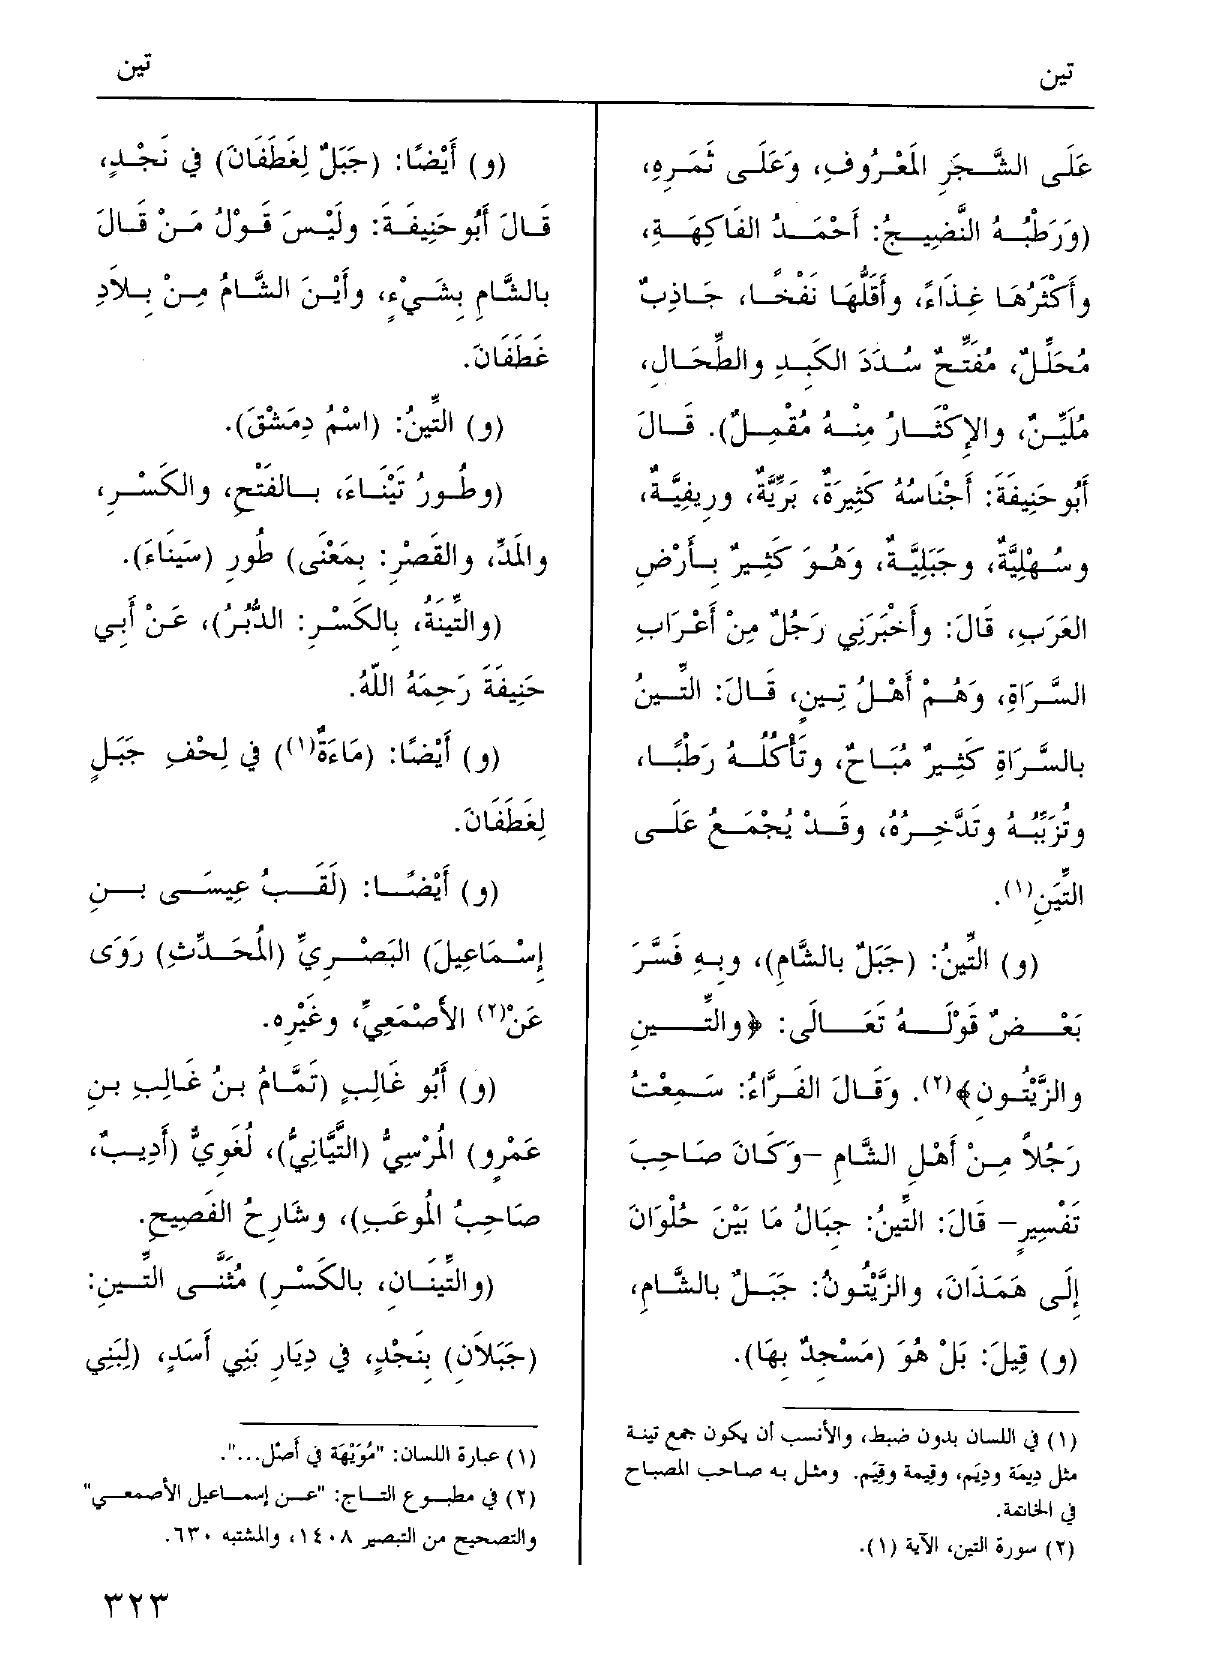 تين
تين
عَلَى الشَّجَرِ المَعْرُوفِ، وَعَلَى ثَمَرِهِ،
(وَرَطْبُهُ النَّضِيجُ: أَحْمَدُ الفَاكِهَةِ،
وأَكْثَرُهَا غِذَاءً، وأَقَلُّهَا نَفْخًا، جَاذِبٌ
مُحَلِّلٌ، مُفَتِّحٌ سُدَدَ الكَبِدِ والطِّحَالِ،
مُلَيِّنٌ، والإِكْثَارُ مِنْهُ مُقْمِلٌ). قَالَ
أَبُو حَنِيفَةَ: أَجْنَاسُهُ كَثِيرَةٌ، بَرِّيَّةٌ، ورِيفِيَّةٌ،
وسُهْلِيَّةٌ، وجَبَلِيَّةٌ، وَهُوَ كَثِيرٌ بِأَرْضِ
العَرَبِ، قَالَ: وأَخْبَرَنِي رَجُلٌ مِنْ أَعْرَابِ
السَّرَاةِ، وَهُمْ أَهْلُ تِينٍ، قَالَ: التِّينُ
بالسَّرَاةِ كَثِيرٌ مُبَاحٌ، وتَأْكُلُهُ رَطْبًا،
وتُزَبِّبُهُ وتَدَّخِرُهُ، وقَدْ يُجْمَعُ عَلَى
التِّيَنِ(١).
(و) التِّينُ: (جَبَلٌ بالشَّامِ)، وبِهِ فَسَّرَ
بَعْضٌ قَوْلَهُ تَعَالَى: ﴿والتِّينِ
والزَّيْتُونِ﴾(٢). وَقَالَ الفَرَّاءُ: سَمِعْتُ
رَجُلاً مِنْ أَهْلِ الشَّامِ –وَكَانَ صَاحِبَ
تَفْسِيرٍ– قَالَ: التِّينُ: جِبَالُ مَا بَيْنَ حُلْوَانَ
إِلَى هَمَذَانَ، والزَّيْتُونُ: جَبَلٌ بالشَّامِ،
(و) قِيلَ: بَلْ هُوَ (مَسْجِدٌ بِهَا).
(١) في اللسان بدون ضبط، والأنسب أن يكون جمع تينة
مثل دِيمَة ودِيَم، وقِيمة وقِيَم. ومثل به صاحب المصباح
في الخاتمة.
(٢) سورة التين، الآية (١).
(و) أَيْضًا: (جَبَلٌ لِغَطَفَانَ) في نَجْدٍ،
قَالَ أَبُو حَنِيفَةَ: ولَيْسَ قَوْلُ مَنْ قَالَ
بالشَّامِ بِشَيْءٍ، وأَيْنَ الشَّامُ مِنْ بِلاَدِ
غَطَفَانَ.
(و) التِّينُ: (اسْمُ دِمَشْقَ).
(وطُورُ تَيْنَاءَ، بالفَتْحِ، والكَسْرِ،
والمَدِّ، والقَصْرِ: بِمَعْنَى) طُورِ (سَيْنَاءَ).
(والتِّينَةُ، بالكَسْرِ: الدُّبُرُ)، عَنْ أَبِي
حَنِيفَةَ رَحِمَهُ اللّهُ.
(و) أَيْضًا: (مَاءَةٌ(١)) في لِحْفِ جَبَلٍ
لِغَطَفَانَ.
(و) أَيْضًا: (لَقَبُ عِيسَى بنِ
إِسْمَاعِيلَ) البَصْرِيِّ (المُحَدِّثِ) رَوَى
عَنْ(٢) الأَصْمَعِيِّ، وغَيْرِه.
(و) أَبُو غَالِبٍ (تَمَّامُ بنُ غَالِبِ بنِ
عَمْرٍو) المُرْسِيُّ (التَّيَّانِيُّ)، لُغَوِيٌّ (أَدِيبٌ،
صَاحِبُ المُوعَبِ)، وشَارِحُ الفَصِيحِ.
(والتِّينَانِ، بالكَسْرِ) مُثَنَّى التِّينِ:
(جَبَلاَنِ) بِنَجْدٍ، في دِيَارِ بَنِي أَسَدٍ، (لِبَنِي
(١) عبارة اللسان: "مُوَيْهَة في أَصْل...".
(٢) في مطبوع التاج: "عن إسماعيل الأصمعي"
والتصحيح من التبصير ١٤٠٨، والمشتبه ٦٣٠.
٣٢٣